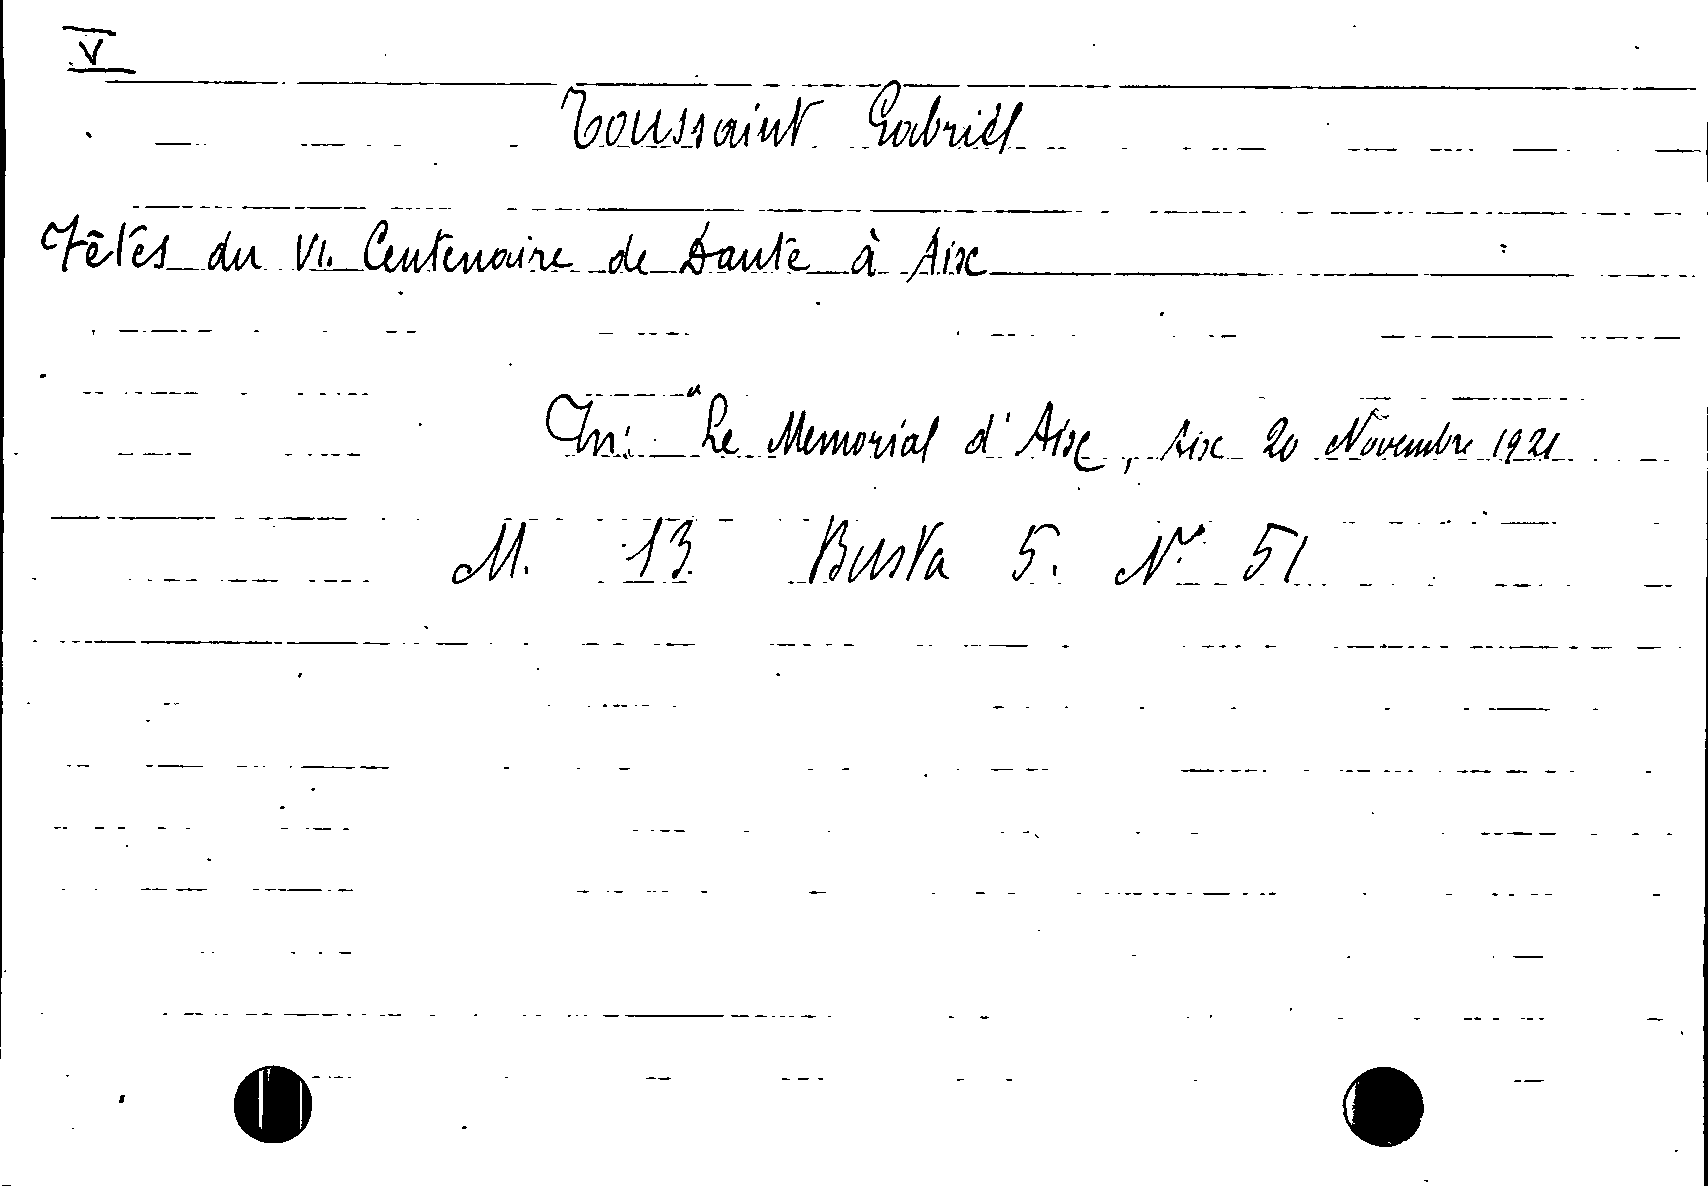 V
Toussaint Gabriel
Fêtes du VI. Centenaire de Dante à Aix
In: "Le Memorial d'Aix, Aix 20 Novembre 1921
M. 13 Busta 5. N° 51